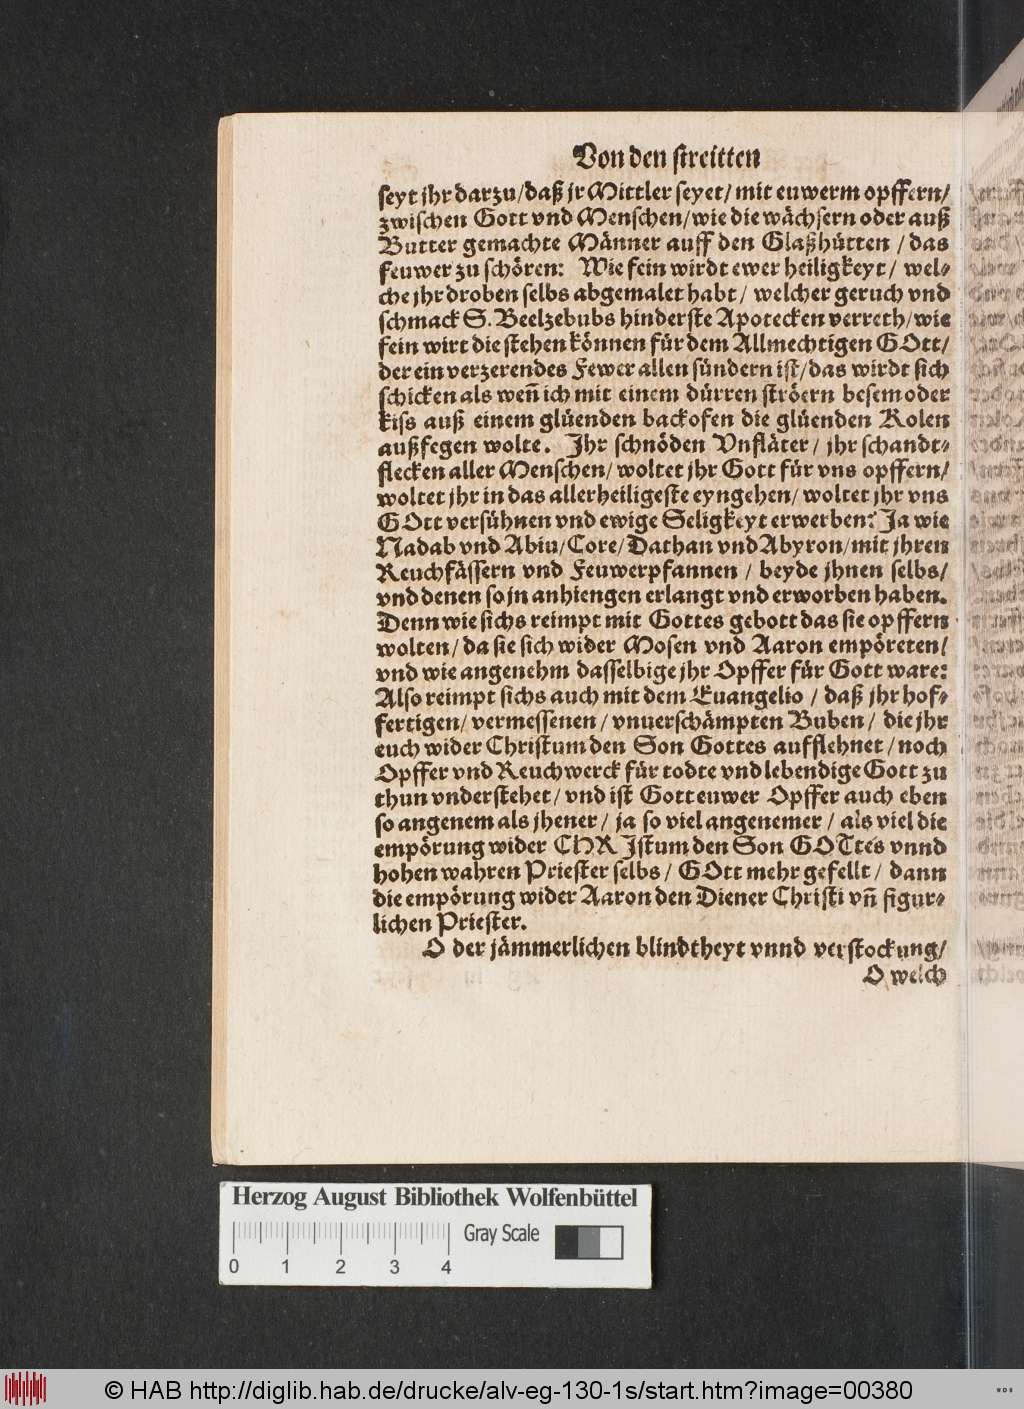 Von den streitten
seyt jhr darzu/daß jr Mittler seyet/ mit euwerm opffern/
zwischen Gott vnd Menschen/wie die wächsern oder auß
Butter gemachte Männer auff den Glaßhütten /das
feuwer zu schören: Wie fein wirdt ewer heiligkeyt/ wel⸗
che jhr droben selbs abgemalet habt/ welcher geruch vnd
schmack S. Beelzebubs hinderste Apotecken verreth/wie
fein wirt die stehen können für dem Allmechtigen GOtt/
der ein verzerendes Fewer allen sündern ist/das wirdt sich
schicken als weñ ich mit einem dürren ströern besem oder
kiss auß einem glüenden backofen die glüenden Kolen
außfegen wolte. Ihr schnöden Vnfläter/ jhr schandt⸗
flecken aller Menschen/ woltet jhr Gott für vns opffern/
woltet jhr in das allerheiligeste eyngehen/ woltet jhr vns
GOtt versühnen vnd ewige Seligkeyt erwerben: Ja wie
Nadab vnd Abiu/Core/Dathan vnd Abyron/mit jhren
Reuchfässern vnd Feuwerpfannen / beyde jhnen selbs/
vnd denen so jn anhiengen erlangt vnd erworben haben.
Denn wie sichs reimpt mit Gottes gebott das sie opffern
wolten/ da sie sich wider Mosen vnd Aaron empöreten/
vnd wie angenehm dasselbige jhr Opffer für Gott ware:
Also reimpt sichs auch mit dem Euangelio / daß jhr hof⸗
fertigen/ vermessenen/ vnuerschämpten Buben/ die jhr
euch wider Christum den Son Gottes aufflehnet/noch
Opffer vnd Reuchwerck für todte vnd lebendige Gott zu
thun vnderstehet/ vnd ist Gott euwer Opffer auch eben
so angenem als jhener/ ja so viel angenemer/ als viel die
empörung wider CHRJstum den Son GOTtes vnnd
hohen wahren Priester selbs/ GOtt mehr gefellt/ dann
die empörung wider Aaron den Diener Christi vñ figur⸗
lichen Priester.
O der jämmerlichen blindtheyt vnnd verstockung/
O welch
Herzog August Bibliothek Wolfenbüttel
Gray Scale
0 1 2 3 4
© HAB http://diglib.hab.de/drucke/alv-eg-130-1s/start.htm?image=00380